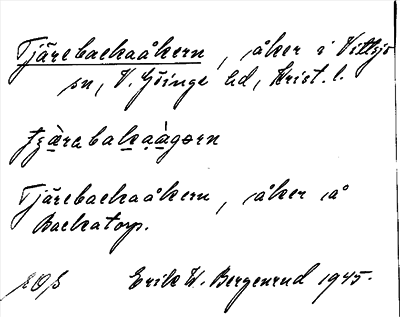 Tjärebackaåkern, åker i Vittsjö
sn, V. Göinge hd, Krist. l.
Tjärebackaåkern, åker å
Backatorp.
Erik W. Bergenrud 1945.